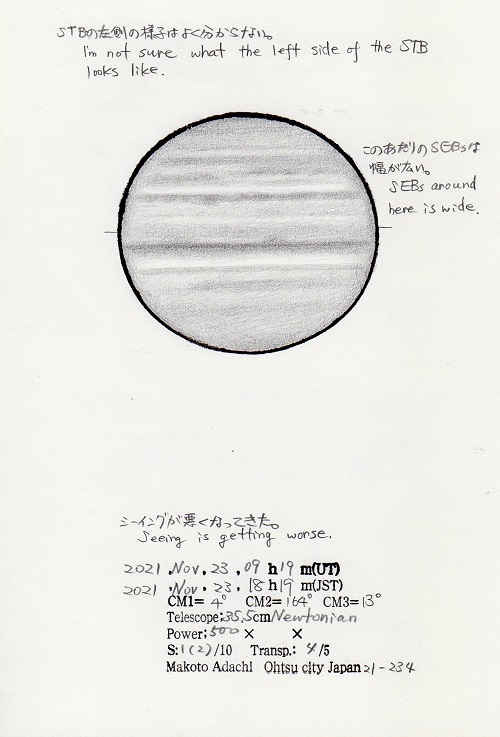 STBの左側の様子はよく分からない。
I'm not sure what the left side of the STB
looks like.
このあたりのSEBsは
幅が広い。
SEBs around
here is wide.
シーイングが悪くなってきた。
Seeing is getting worse.
2021 .Nov. 23 . 09 h 19 m(UT)
2021 .Nov. 23 . 18 h 19 m(JST)
CM1= 4° CM2= 164° CM3= 13°
Telescope:35.5cm Newtonian
Power; 500 × ×
S:1(2)/10 Transp.: 4/5
Makoto Adachi Ohtsu city Japan 21-234